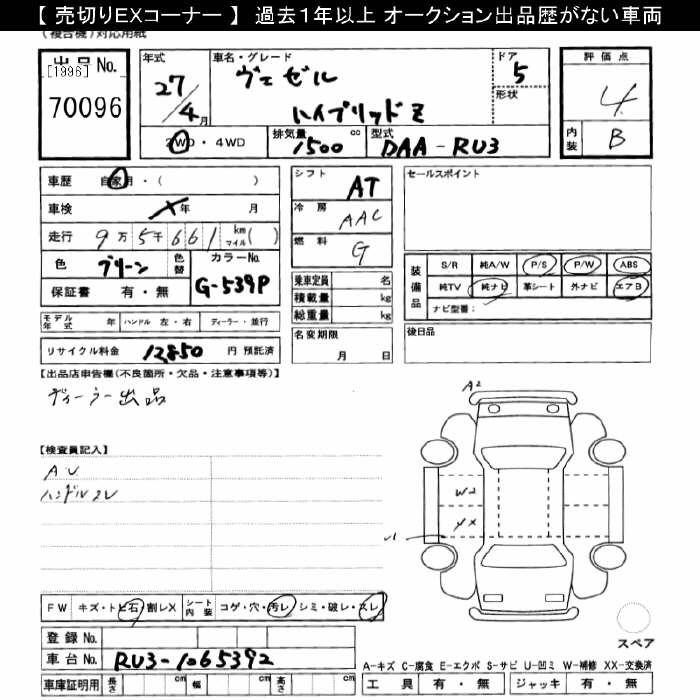 【 売切りEXコーナー 】 過去１年以上 オークション出品歴がない車両
(複合機)対応用紙
出品No. [1996] 70096
年式 27/4月
車名・グレード ヴェゼル ハイブリッドZ
ドア 5
形状
評価点 4
内装 B
2WD・4WD
排気量 1500 cc
型式 DAA-RU3
車歴 自家用・( )
車検 年 月
走行 9万5千661 km マイル( )
色 グリーン 色替 カラーNo. G-539P
保証書 有・無
モデル年式 年 ハンドル 左・右 ディーラー・並行
リサイクル料金 12850 円 預託済
シフト AT
冷房 AAC
燃料 G
乗車定員 名
積載量 kg
総重量 kg
名変期限 月 日
セールスポイント
装備品 S/R 純A/W P/S P/W ABS
純TV 純ナビ 革シート 外ナビ エアB
ナビ型番：
後日品
【出品店申告欄(不良箇所・欠品・注意事項等)】
ディーラー出品
【検査員記入】
AU
ハンドルスレ
A2
W2
XX
FW キズ・トビ石・割レX シート内装 コゲ・穴・汚レ シミ・破レ・スレ
登録No.
車台No. RU3-1065392
車庫証明用 長さ cm 幅 cm 高さ cm
スペア
A-キズ C-腐食 E-エクボ S-サビ U-凹ミ W-補修 XX-交換済
工具 有・無 ジャッキ 有・無